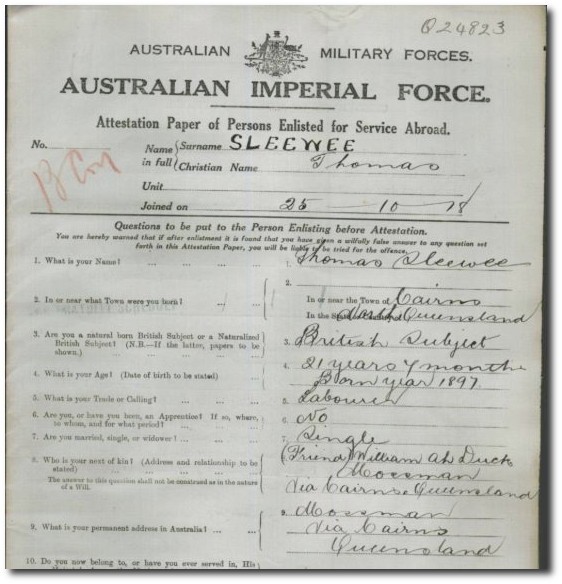 Q24823
AUSTRALIAN MILITARY FORCES.
AUSTRALIAN IMPERIAL FORCE.
Attestation Paper of Persons Enlisted for Service Abroad.
No. Name in full Surname SLEEWEE
Christian Name Thomas
Unit
Joined on 25 10 18
Questions to be put to the Person Enlisting before Attestation.
You are hereby warned that if after enlistment it is found that you have given a wilfully false answer to any question set
forth in this Attestation Paper, you will be liable to be tried for the offence.
1. What is your Name? ... 1. Thomas Sleewee
2. In or near what Town were you born? 2. In or near the Town of Cairns
In the State North Queensland
3. Are you a natural born British Subject or a Naturalized
British Subject? (N.B.—If the latter, papers to be
shown.) 3. British Subject
4. What is your Age? (Date of birth to be stated) 4. 21 years 7 months
Born year 1897
5. What is your Trade or Calling? 5. Labourer
6. Are you, or have you been, an Apprentice? If so, where,
to whom, and for what period? 6. No
7. Are you married, single, or widower? 7. Single
8. Who is your next of kin? (Address and relationship to be
stated) 8. (Friend) William Ah Duck
Mossman
Via Cairns Queensland
The answer to this question shall not be construed as in the nature
of a Will.
9. What is your permanent address in Australia? 9. Mossman
Via Cairns
Queensland
10. Do you now belong to, or have you ever served in, His